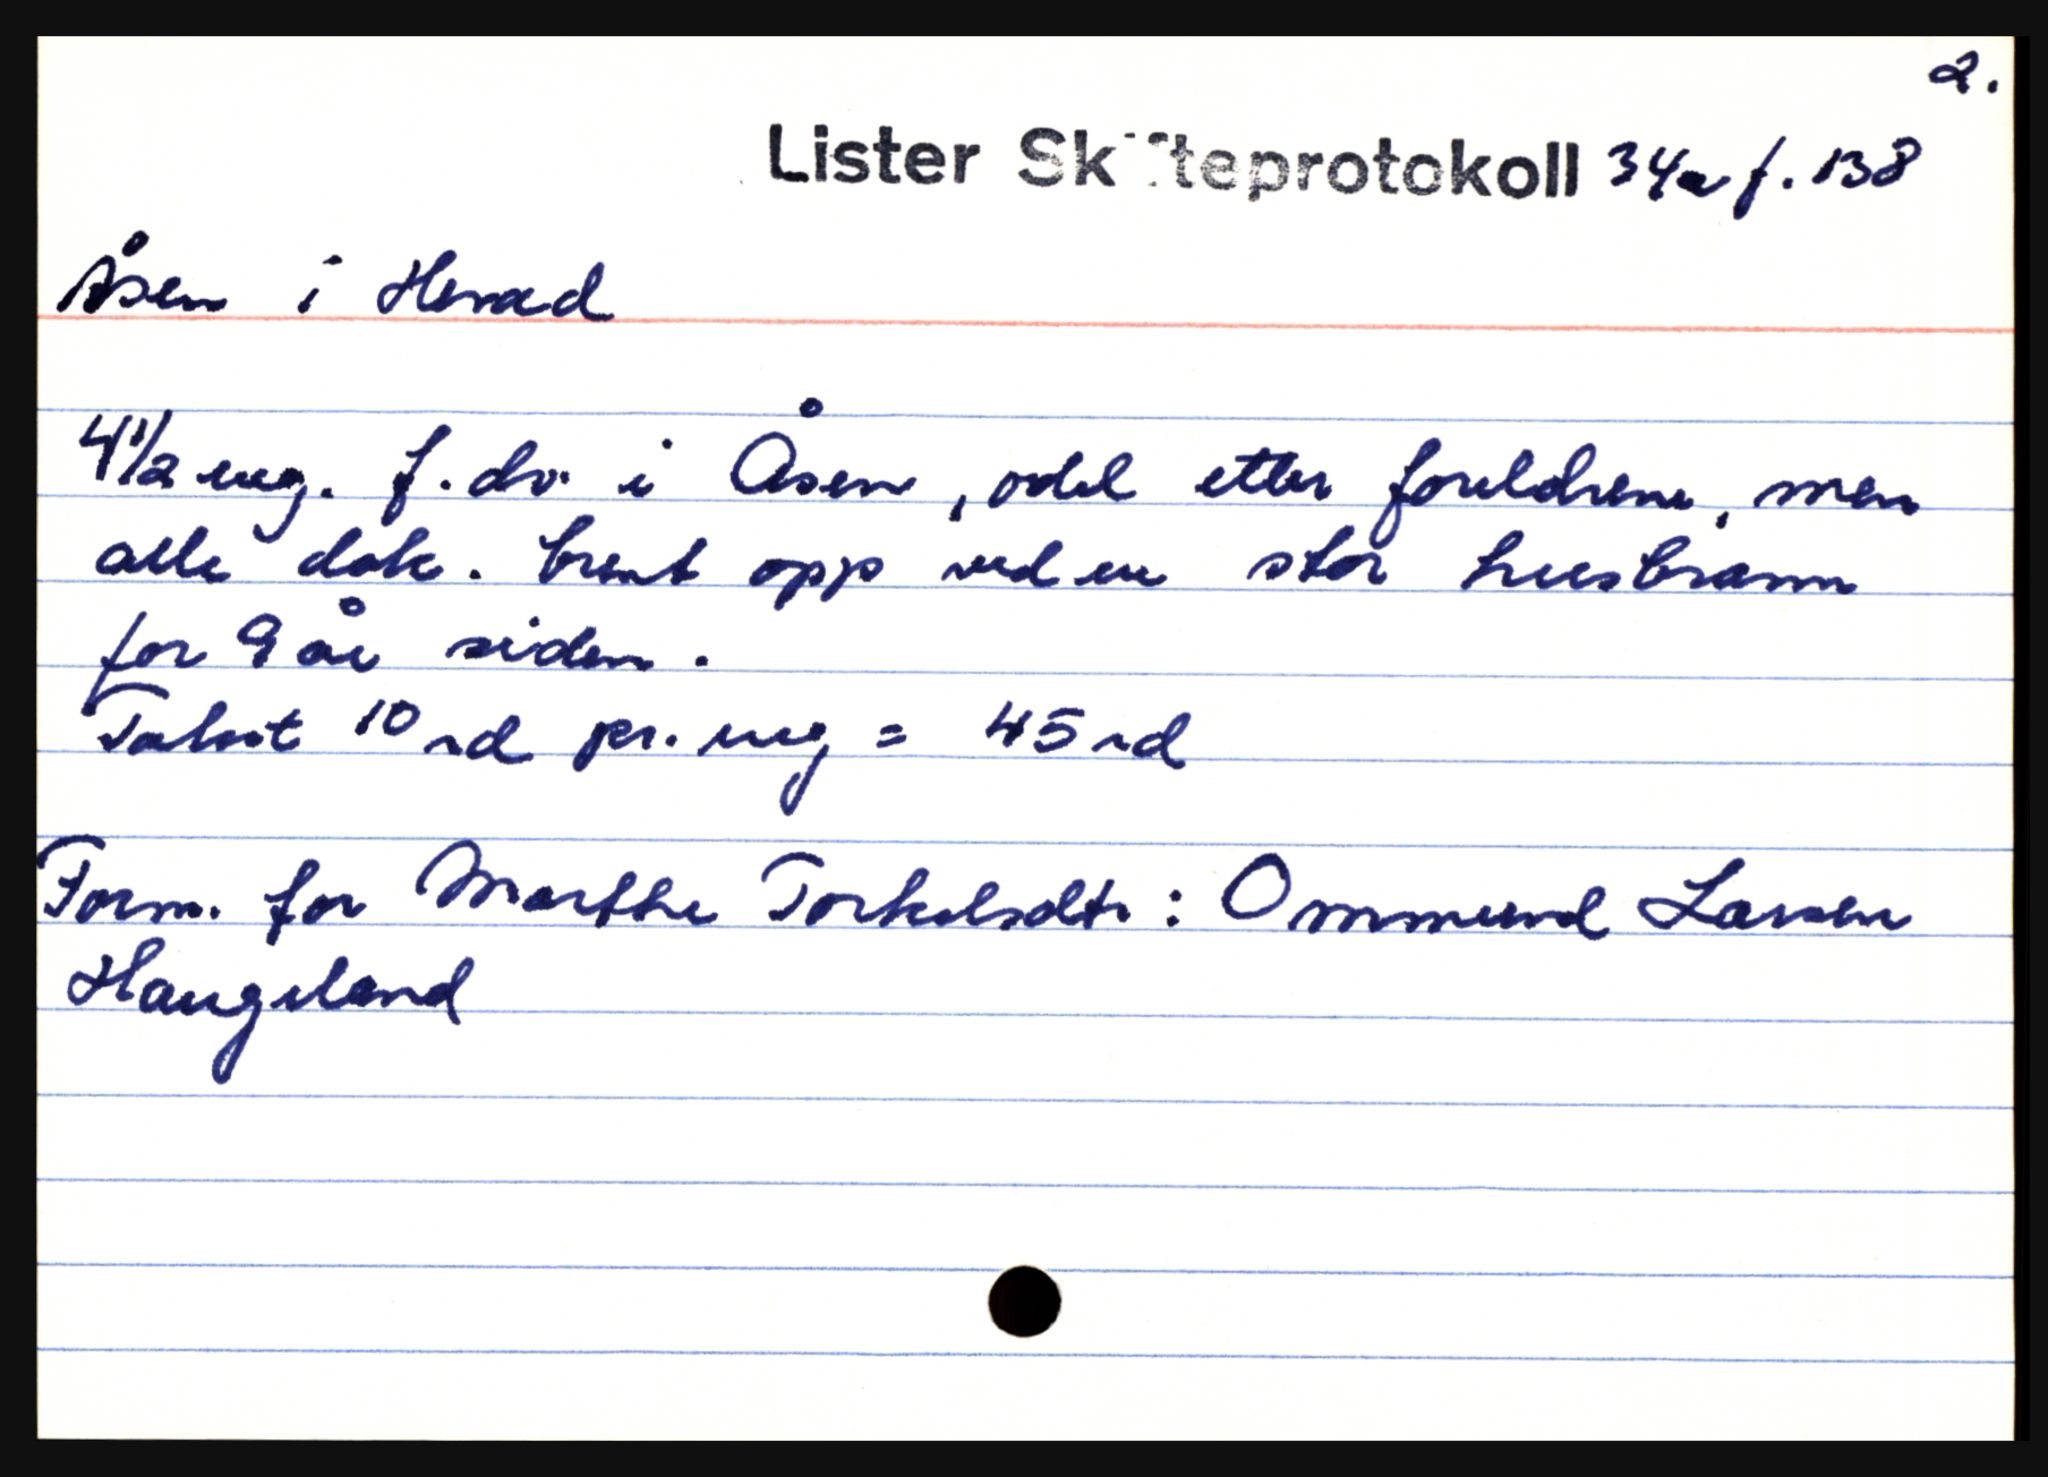 2.
Lister Skifteprotokoll 34a f. 138
Åsen i Herad
4 1/2 eng. f. dv. i Åsen, odel etter foreldrene, men
alle dok. brent opp ved en stor husbrann
for 9 år siden.
Takst 10 rd pr. eng = 45 rd
Form. for Marthe Torkelsdtr: Ommund Larsen
Haugeland